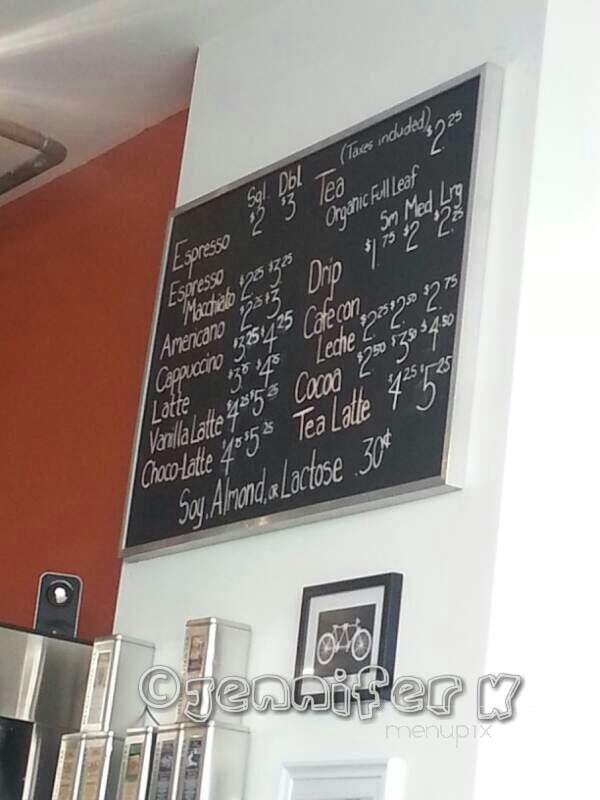 Sgl. Dbl.
Espresso $2 $3
Espresso
Macchiato $2.25 $3.25
Americano $2.25 $3
Cappuccino $3.25 $4.25
Latte
Vanilla Latte $4.25 $5.25
Choco-Latte $5.25
(Taxes included)
Tea $2.25
Organic Full Leaf
Sm Med Lrg
Drip $1.75 $2 $2.25
Cafe con
Leche $2.25 $2.50 $2.75
Cocoa $2.50 $3.50 $4.50
Tea Latte $4.25 $5.25
Soy, Almond, or Lactose .30¢
©Jennifer K
menupix